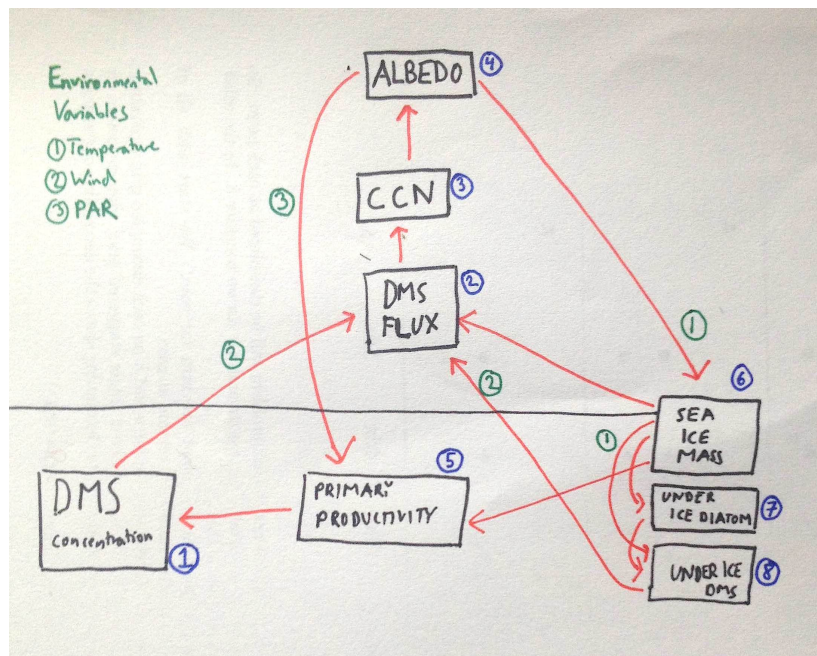 Environmental
Variables
① Temperature
② Wind
③ PAR
ALBEDO ④
③
CCN ③
DMS ②
FLUX
①
②
②
⑥
SEA
ICE
MASS
①
DMS
concentration ①
⑤
PRIMARY
PRODUCTIVITY
UNDER ⑦
ICE DIATOM
UNDER ICE ⑧
DMS